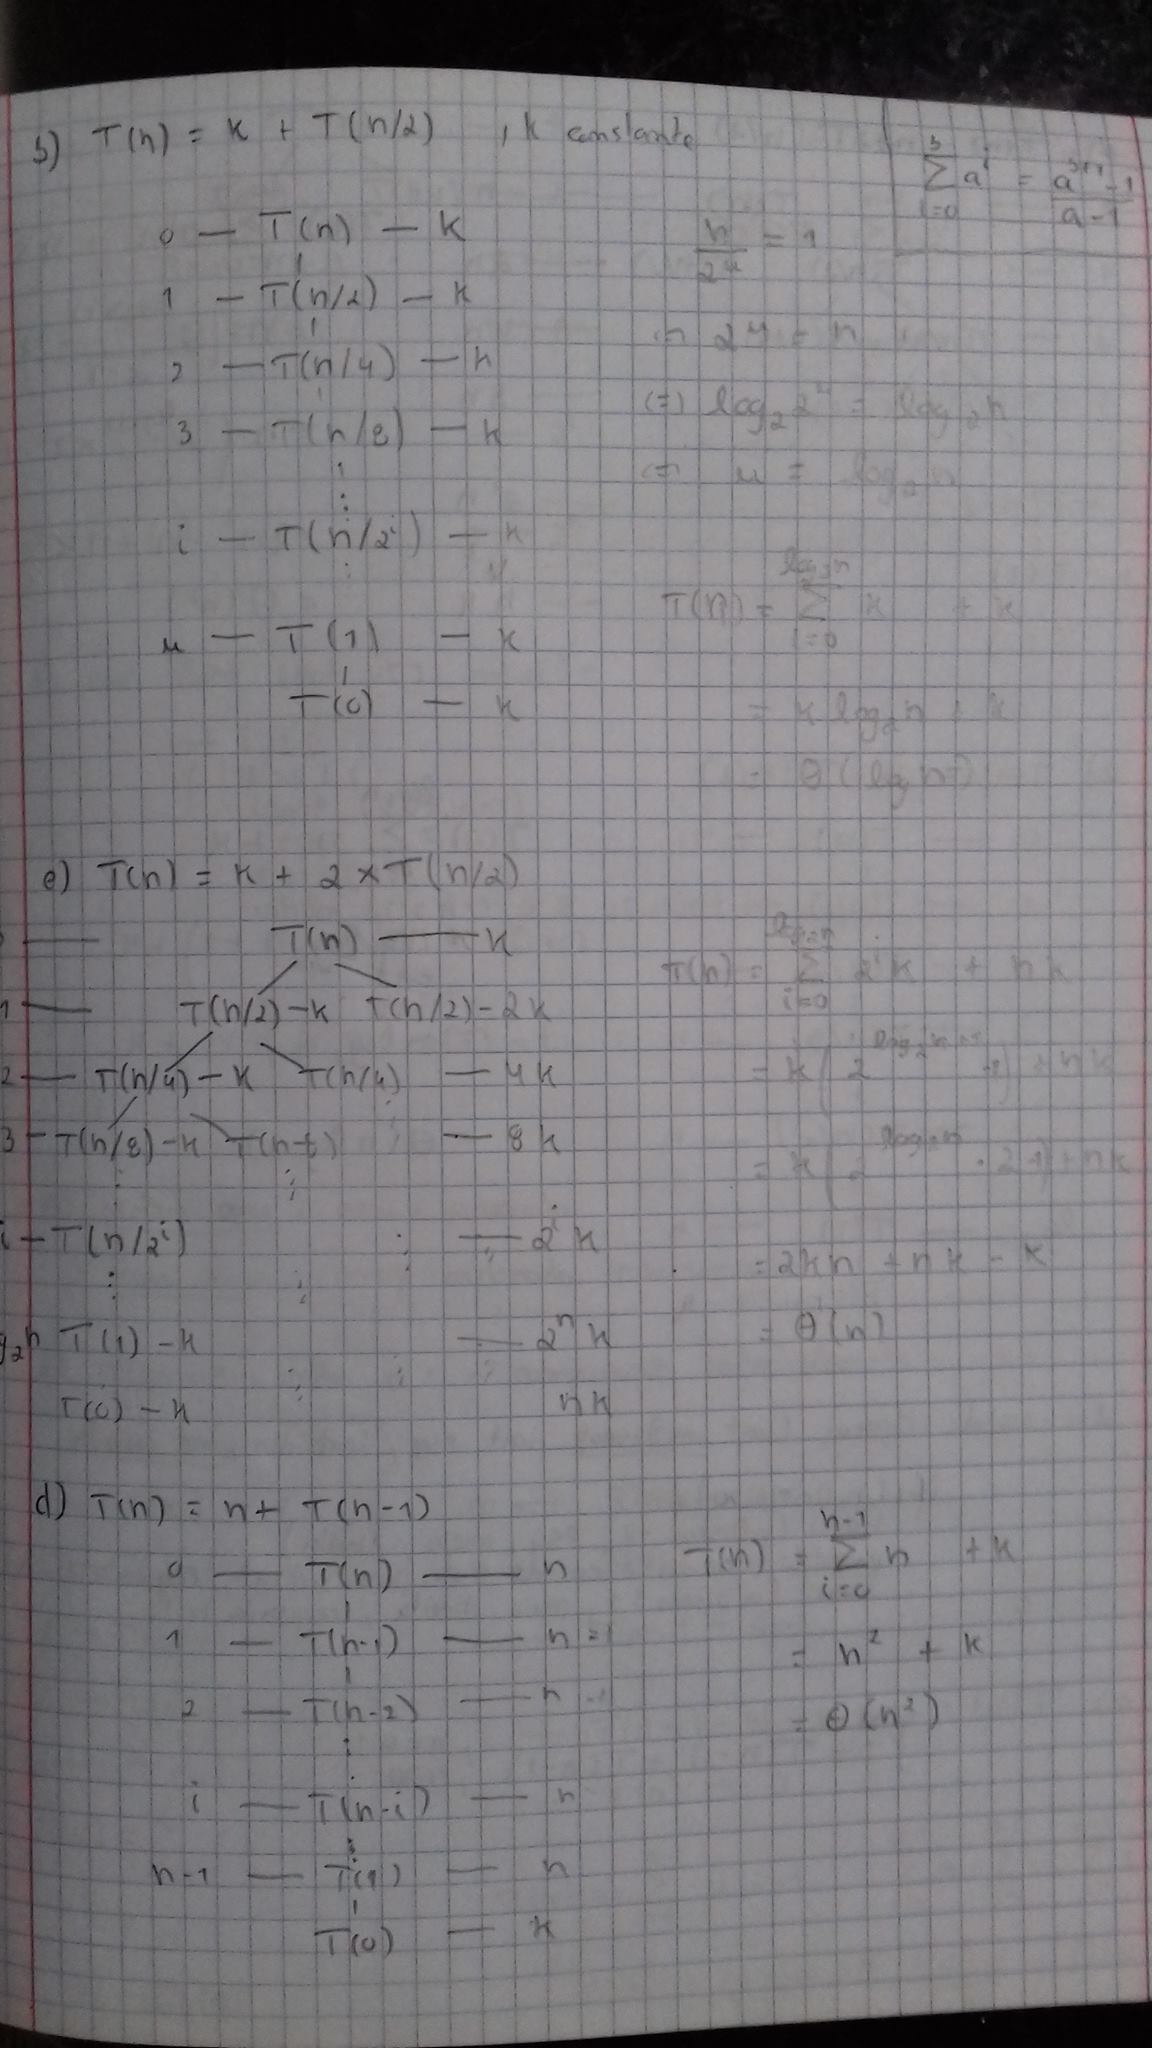 b) T(n) = k + T(n/2) , k constante
0 — T(n) — k
1 — T(n/2) — k
2 — T(n/4) — k
3 — T(n/8) — k
⋮
i — T(n/2^i) — k
u — T(1) — k
T(0) — k
∑_{i=0}^{b} a^i = (a^{b+1} - 1)/(a - 1)
n/2^u = 1
(=) 2^u = n
(=) log_2 2^u = log_2 n
(=) u = log_2 n
T(n) = ∑_{i=0}^{log_2 n} k + k
= k log_2 n + k
= Θ(log n)
c) T(n) = k + 2 × T(n/2)
T(n) — k
1 — T(n/2) - k T(n/2) - 2k
2 — T(n/4) - k T(n/4) — 4k
3 - T(n/8) - k T(n-8) — 8k
i - T(n/2^i) — 2^i k
⋮
g_2 n T(1) - k — 2^n k
T(0) - k nk
T(n) = ∑_{i=0}^{log_2 n} 2^i k + nk
= k(2^{log_2 n +1} - 1) + nk
= k(2^{log_2 n} · 2 - 1) + nk
= 2kn + nk - k
= Θ(n)
d) T(n) = n + T(n-1)
0 — T(n) — n
1 — T(n-1) — n
2 — T(n-2) — n
⋮
i — T(n-i) — n
n-1 — T(1) — n
T(0) — k
T(n) = ∑_{i=0}^{n-1} n + k
= n² + k
= Θ(n²)